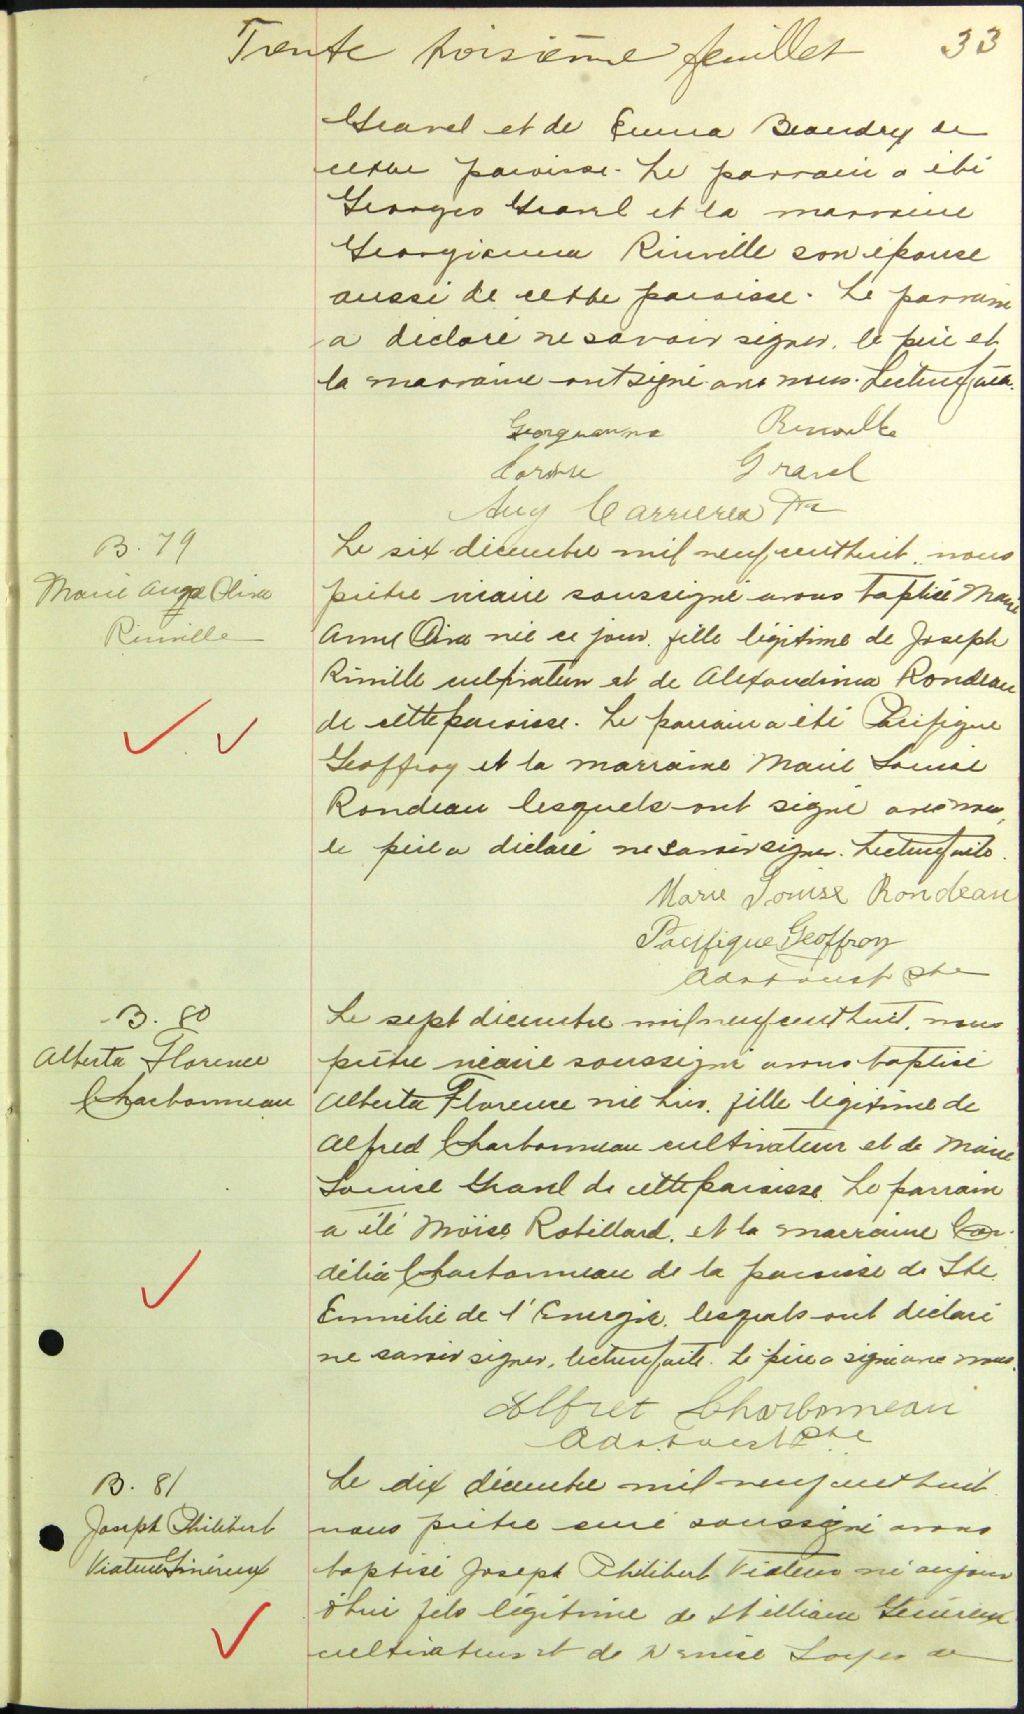 Trente troisième feuillet 33
Gravel et de Emma Beaudry de
cette paroisse. Le parrain a été
Georges Gravel et la marraine
Georgianna Rinville son épouse
aussi de cette paroisse. Le parrain
a déclaré ne savoir signer, le père et
la marraine ont signé avec nous. Lecture faite.
Georgianna Rinville
Gravel
Aug Carrieres Ptre
B. 79
Marie Ange Oliva
Rinville
Le six décembre mil neuf cent huit, nous
prêtre vicaire soussigné avons baptisé Marie
Ange Oliva née ce jour, fille légitime de Joseph
Rinville cultivateur et de Alexandrina Rondeau
de cette paroisse. Le parrain a été Pacifique
Geoffroy et la marraine Marie Louise
Rondeau lesquels ont signé avec nous,
le père a déclaré ne savoir signer. Lecture faite.
Marie Louise Rondeau
Pacifique Geoffroy
Ptre
B. 80
Alberta Florence
Charbonneau
Le sept décembre mil neuf cent huit, nous
prêtre vicaire soussigné avons baptisé
Alberta Florence née hier, fille légitime de
Alfred Charbonneau cultivateur et de Marie
Louise Gravel de cette paroisse. Le parrain
a été Moïse Robillard, et la marraine Cor-
délia Charbonneau de la paroisse de Ste
Emmélie de l'Energie, lesquels ont déclaré
ne savoir signer, lecture faite. Le père a signé avec nous.
Alfret Charbonneau
Ptre
B. 81
Joseph Philibert
Viateur Généreux
Le dix décembre mil neuf cent huit
nous prêtre curé soussigné avons
baptisé Joseph Philibert Viateur né aujour
d'hui fils légitime de William Généreux
cultivateur et de de